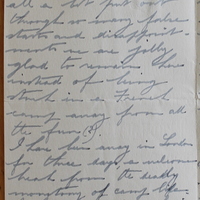 all a bit put out
through so many false
starts and disappoint-
ments we are jolly
glad to remain here
instead of being
stuck in a French
camp away from all
the fun (?).
I have been away in London
for three days a welcome
break from the deadly
monotony of camp life